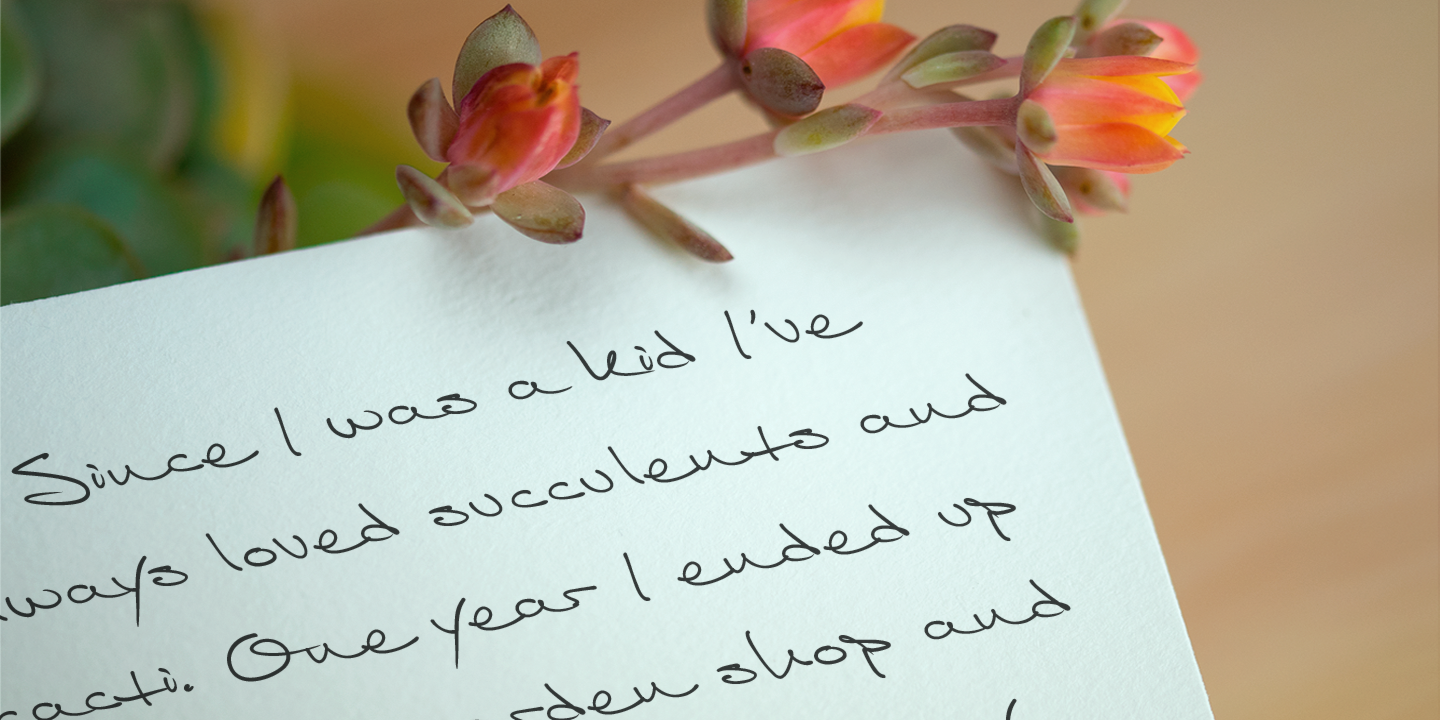 Since I was a kid I've
ways loved succulents and
cacti. One year I ended up
rden shop and